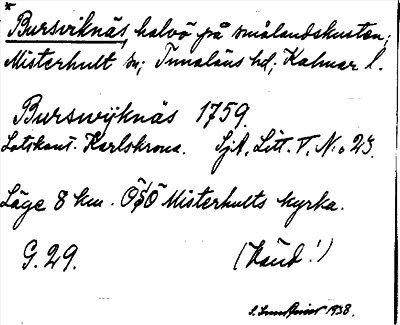 *
Bursviknäs, halvö på smålandskusten;
Misterhult sn; Tunaläns hd; Kalmar l.
Burswijknäs 1759.
Lotskont. Karlskrona. SjA, Litt. T. N:o 23.
Läge 8 km. ÖSÖ Misterhults kyrka.
G. 29. (Känd!)
1938.